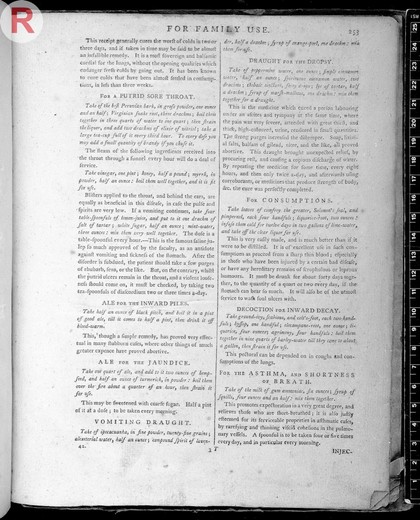 R
FOR FAMILY USE.
253
This receipt generally cures the worst of colds in two or
three days, and if taken in time may be said to be almost
an infallible remedy. It is a most sovereign and balsamic
cordial for the lungs, without the opening qualities which
endanger fresh colds by going out. It has been known
to cure colds that have been almost settled in consump-
tions, in less than three weeks.
For a PUTRID SORE THROAT.
Take of the best Peruvian bark, in gross powder, one ounce
and an half; Virginian snake root, three drachms; boil them
together in three quarts of water to one quart; then strain
the liquor, and add two drachms of elixir of vitriol; take a
large tea-cup full of it every third hour. To every dose you
may add a small quantity of brandy if you chuse it.
The steam of the following ingredients received into
the throat through a funnel every hour will do a deal of
service.
Take vinegar, one pint; honey, half a pound; myrrh, in
powder, half an ounce: boil them well together, and it is fit
for use.
Blisters applied to the throat, and behind the ears, are
equally as beneficial in this disease, in case the pulse and
spirits are very low. If a vomiting continues, take four
table-spoonfuls of lemon-juice, and put to it one drachm of
salt of tartar; white sugar, half an ounce; mint-water,
three ounces: mix them very well together. The dose is a
table-spoonful every hour.—This is the famous saline ju-
lep so much approved of by the faculty, as an antidote
against vomiting and sickness of the stomach. After the
disorder is subsided, the patient should take a few purges
of rhubarb, sena, or the like. But, on the contrary, whilst
the putrid ulcers remain in the throat, and a violent loose-
ness should come on, it must be checked, by taking two
tea-spoonfuls of diascordium two or three times a-day.
ALE for the INWARD PILES.
Take half an ounce of black pitch, and boil it in a pint
of good ale, till it comes to half a pint, then drink it off
blood-warm.
This, though a simple remedy, has proved very effec-
tual in many stubborn cases, where other things of much
greater expence have proved abortive.
ALE for the JAUNDICE.
Take one quart of ale, and add to it two ounces of hemp-
seed, and half an ounce of turmerick, in powder: boil them
over the fire about a quarter of an hour, then strain it
for use.
This may be sweetened with coarse sugar. Half a pint
of it is a dose; to be taken every morning.
VOMITING DRAUGHT.
Take of ipecacuanha, in fine powder, twenty-four grains;
alexiterial water, half an ounce; compound spirit of laven-
42.
3 T
der, half a drachm; syrup of orange-peel, one drachm: mix
them for use.
DRAUGHT for the DROPSY.
Take of peppermint water, one ounce; simple cinnamon
water, half an ounce;
drachms;
drachm; syrup of marsh-mallows, one drachm: mix them
together for a draught.
This is the medicine which cured a patient labouring
under an ascites and tympany at the same time, where
the pain was very severe, attended with great thirst, and
thick, high-coloured, urine, rendered in small quantities.
The strong purges increased the distemper. Soap, lixivi-
al salts, balsam of gilead, nitre, and the like, all proved
abortive. This draught brought unexpected relief, by
procuring rest, and causing a copious discharge of water.
By repeating the medicine for some time, every eight
hours, and then only twice a-day, and afterwards using
corroborants, or medicines that produce strength of body,
&c. the cure was perfectly completed.
For CONSUMPTIONS.
Take leaves of comfrey the greater, Solomon's seal, and
pimpernel, each four handfuls; liquorice-root, two ounces:
infuse them cold for twelve days in two gallons of lime-water,
and take off the clear liquor for use.
This is very easily made, and is much better than if it
were to be distilled. It is of excellent use in such con-
sumptions as proceed from a sharp thin blood; especially
in those who have been injured by a certain foul disease,
or have any hereditary remains of scrophulous or leprous
humours. It must be drunk for about forty days toge-
ther, to the quantity of a quart or two every day, if the
stomach can bear so much. It will also be of the utmost
service to wash foul ulcers with.
DECOCTION for INWARD DECAY.
Take ground-ivy, scabious, and colt's-foot, each two hand-
fuls; hyssop, one handful; elecampane-root, one ounce; li-
quorice, four ounces; agrimony, four handfuls: boil them
together in nine quarts of barley-water till they come to about
a gallon, then strain it for use.
This pectoral can be depended on in coughs and con-
sumptions of the lungs.
For the ASTHMA, and SHORTNESS
of BREATH.
Take of the milk of gum ammoniac, six ounces; syrup of
squills, four ounces and an half: mix them together.
This promotes expectoration in a very great degree, and
relieves those who are short-breathed; it is also justly
esteemed for its serviceable properties in asthmatic cases,
by rarefying and thinning viscid cohesions in the pulmo-
nary vessels. A spoonful is to be taken four or five times
every day, and in particular every morning.
INJEC-